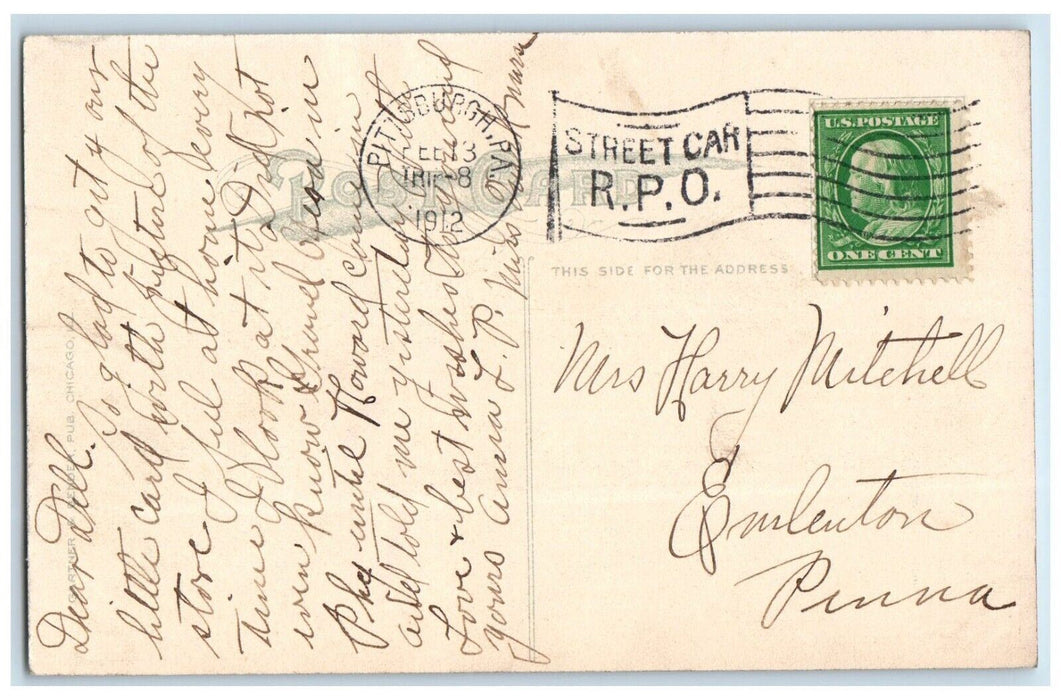 Dear Dell. So glad to get your
little card with picture of the
store. I feel at home every
time I look at it. I did not
even know Irene was in
Pha until Howard came in
and told me yisterday
Love & best wishes
yours Anna L. P.
PITTSBURGH, PA.
FEB 13
8
1912
STREET CAR
R.P.O.
U.S. POSTAGE
ONE CENT
POST CARD
THIS SIDE FOR THE ADDRESS
Mrs Harry Mitchell
Emlenton
Penna
PUB. CHICAGO, ILL.